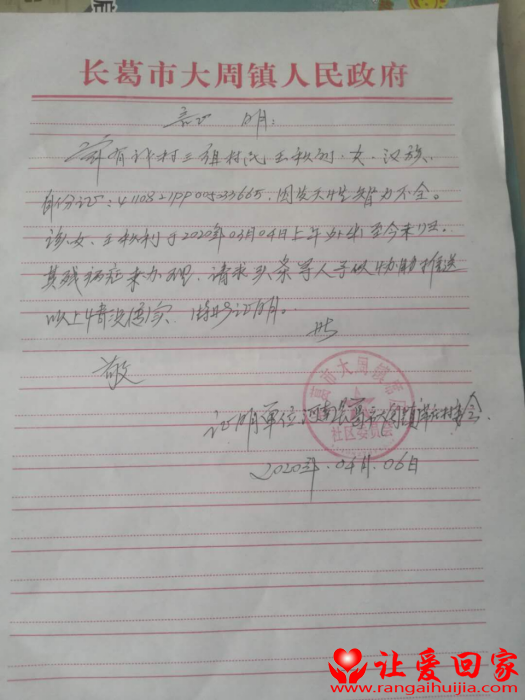 长葛市大周镇人民政府
证 明:
有 村三组村民王秋利、女、汉族、
身份证: 因先天性智力不全。
该女、王秋利于2020年03月04日上午外出至今未归。
其残疾证未办理、请求头条寻人予以协助推送
以上情况属实、特此证明。
此
敬
证明单位 河南长葛市大周镇 村委会
社区委员会
2020年.04月.06日
让爱回家
www.rangaihuijia.com